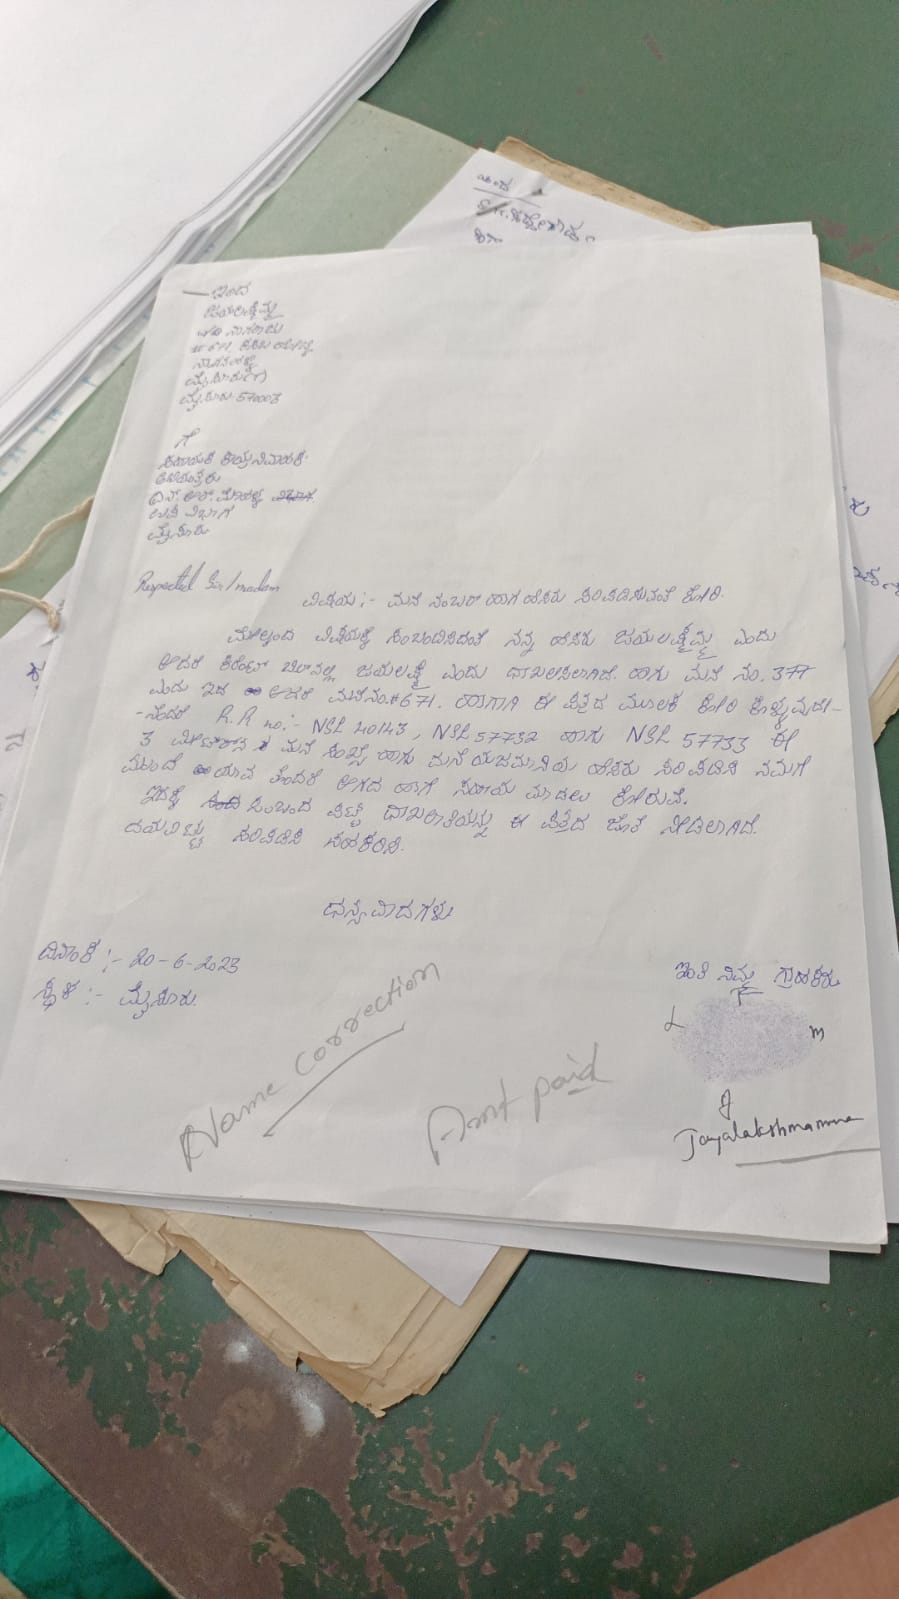 ಇಂದ
ಜಯಲಕ್ಷ್ಮಮ್ಮ
ನಾಗರಾಜು
#671,
ಮೈಸೂರು(ತಾ)
ಮೈಸೂರು-570003
ಗೆ
ಸಹಾಯಕ ಕಾರ್ಯನಿರ್ವಾಹಕ
ಅಭಿಯಂತರು
ಎನ್. ಆರ್. ಮೊಹಲ್ಲ
ಉಪ ವಿಭಾಗ
ಮೈಸೂರು
Respected Sir/madam
ವಿಷಯ:- ಮನೆ ನಂಬರ್ ಹಾಗೂ ಹೆಸರು ಸರಿಪಡಿಸುವಂತೆ ಕೋರಿ.
ಮೇಲ್ಕಂಡ ವಿಷಯಕ್ಕೆ ಸಂಬಂಧಿಸಿದಂತೆ ನನ್ನ ಹೆಸರು ಜಯಲಕ್ಷ್ಮಮ್ಮ ಎಂದು
ಆದರೆ ಕರೆಂಟ್ ಬಿಲ್‌ನಲ್ಲಿ ಜಯಲಕ್ಷ್ಮಿ ಎಂದು ದಾಖಲಿಸಲಾಗಿದೆ. ಹಾಗು ಮನೆ ನಂ. 377
ಎಂದು ಇದೆ ಆದರೆ ಮನೆನಂ.#671. ಹಾಗಾಗಿ ಈ ಪತ್ರದ ಮೂಲಕ ಕೋರಿ ಕೊಳ್ಳುವುದೇ-
-ನೆಂದರೆ R.R no:- NSL 40143, NSL 57732 ಹಾಗು NSL 57733 ಈ
3 ಮೀಟರ್‌ಗಳ ಮನೆ ಸಂಖ್ಯೆ ಹಾಗು ಮನೆ ಯಜಮಾನಿಯ ಹೆಸರು ಸರಿಪಡಿಸಿ ನಮಗೆ
ಮುಂದೆ ಯಾವ ತೊಂದರೆ ಆಗದ ಹಾಗೆ ಸಹಾಯ ಮಾಡಲು ಕೋರುವೆ.
ಇದಕ್ಕೆ ಸಂಬಂದ ಪಟ್ಟ ದಾಖಲಾತಿಯನ್ನು ಈ ಪತ್ರದ ಜೊತೆ ನೀಡಲಾಗಿದೆ.
ದಯವಿಟ್ಟು ಸರಿಪಡಿಸಿ ಸಹಕರಿಸಿ.
ಧನ್ಯವಾದಗಳು
ದಿನಾಂಕ:- 20-6-2023
ಸ್ಥಳ:- ಮೈಸೂರು.
ಇಂತಿ ನಿಮ್ಮ ಗ್ರಾಹಕರು
L
m
Name correction
Amt paid
Jayalakshmamma